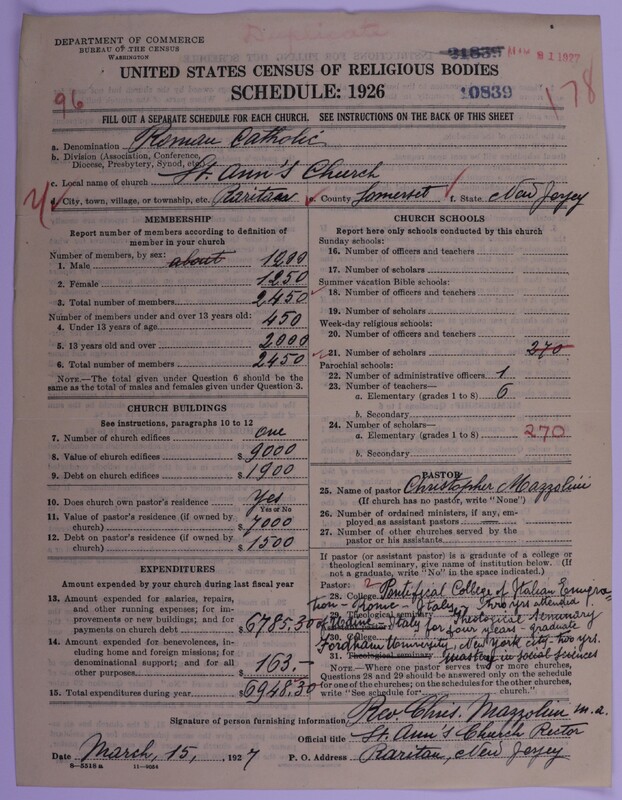 Duplicate
DEPARTMENT OF COMMERCE
BUREAU OF THE CENSUS
WASHINGTON
21839 MAR 21 1927
UNITED STATES CENSUS OF RELIGIOUS BODIES
SCHEDULE: 1926
96
10839
178
FILL OUT A SEPARATE SCHEDULE FOR EACH CHURCH. SEE INSTRUCTIONS ON THE BACK OF THIS SHEET
a. Denomination Roman Catholic
b. Division (Association, Conference, Diocese, Presbytery, Synod, etc.)
c. Local name of church St. Ann's Church
d. City, town, village, or township, etc. Raritan e. County Somerset f. State New Jersey
MEMBERSHIP
Report number of members according to definition of member in your church
Number of members, by sex:
1. Male about 1200
2. Female 1250
3. Total number of members 2450
Number of members under and over 13 years old:
4. Under 13 years of age 450
5. 13 years old and over 2000
6. Total number of members 2450
NOTE.—The total given under Question 6 should be the same as the total of males and females given under Question 3.
CHURCH BUILDINGS
See instructions, paragraphs 10 to 12
7. Number of church edifices one
8. Value of church edifices $ 9000
9. Debt on church edifices $ 1900
10. Does church own pastor's residence? Yes
Yes or No
11. Value of pastor's residence (if owned by church) $ 7000
12. Debt on pastor's residence (if owned by church) $ 1500
EXPENDITURES
Amount expended by your church during last fiscal year
13. Amount expended for salaries, repairs, and other running expenses; for improvements or new building; and for payments on church debt $ 6785.30
14. Amount expended for benevolences, including home and foreign missions; for denominational support; and for all other purposes $ 163.—
15. Total expenditures during year $ 6948.30
CHURCH SCHOOLS
Report here only schools conducted by this church
Sunday schools:
16. Number of officers and teachers
17. Number of scholars
Summer vacation Bible schools:
18. Number of officers and teachers
19. Number of scholars
Week-day religious schools:
20. Number of officers and teachers
21. Number of scholars 270
Parochial schools:
22. Number of administrative officers 1
23. Number of teachers—
a. Elementary (grades 1 to 8) 6
b. Secondary
24. Number of scholars—
a. Elementary (grades 1 to 8) 270
b. Secondary
PASTOR
25. Name of pastor Christopher Mazzolini
(If church has no pastor, write "None")
26. Number of ordained ministers, if any, employed as assistant pastors —
27. Number of other churches served by the pastor or his assistants
If pastor (or assistant pastor) is a graduate of a college or theological seminary, give name of institution below. (If not a graduate, write "No" in the space indicated.)
Pastor: 2
28. College Pontifical College of Italian Emigra-
tion - Rome - Italy, two yrs attendia
29. Theological seminary
Theological Seminary
of Italy for four years - Graduate
30. College
Fordham University, New York city two yrs.
31. Theological seminary master in social sciences
NOTE.—Where one pastor serves two or more churches, Questions 28 and 29 should be answered only on the schedule for one of the churches; on the schedules for the other churches, write "See schedule for church."
Signature of person furnishing information Rev. Chris. Mazzolini M.A.
Official title St. Ann's Church Rector
Date March, 15, 1927 P. O. Address Raritan, New Jersey
8—5318 a 11—9084